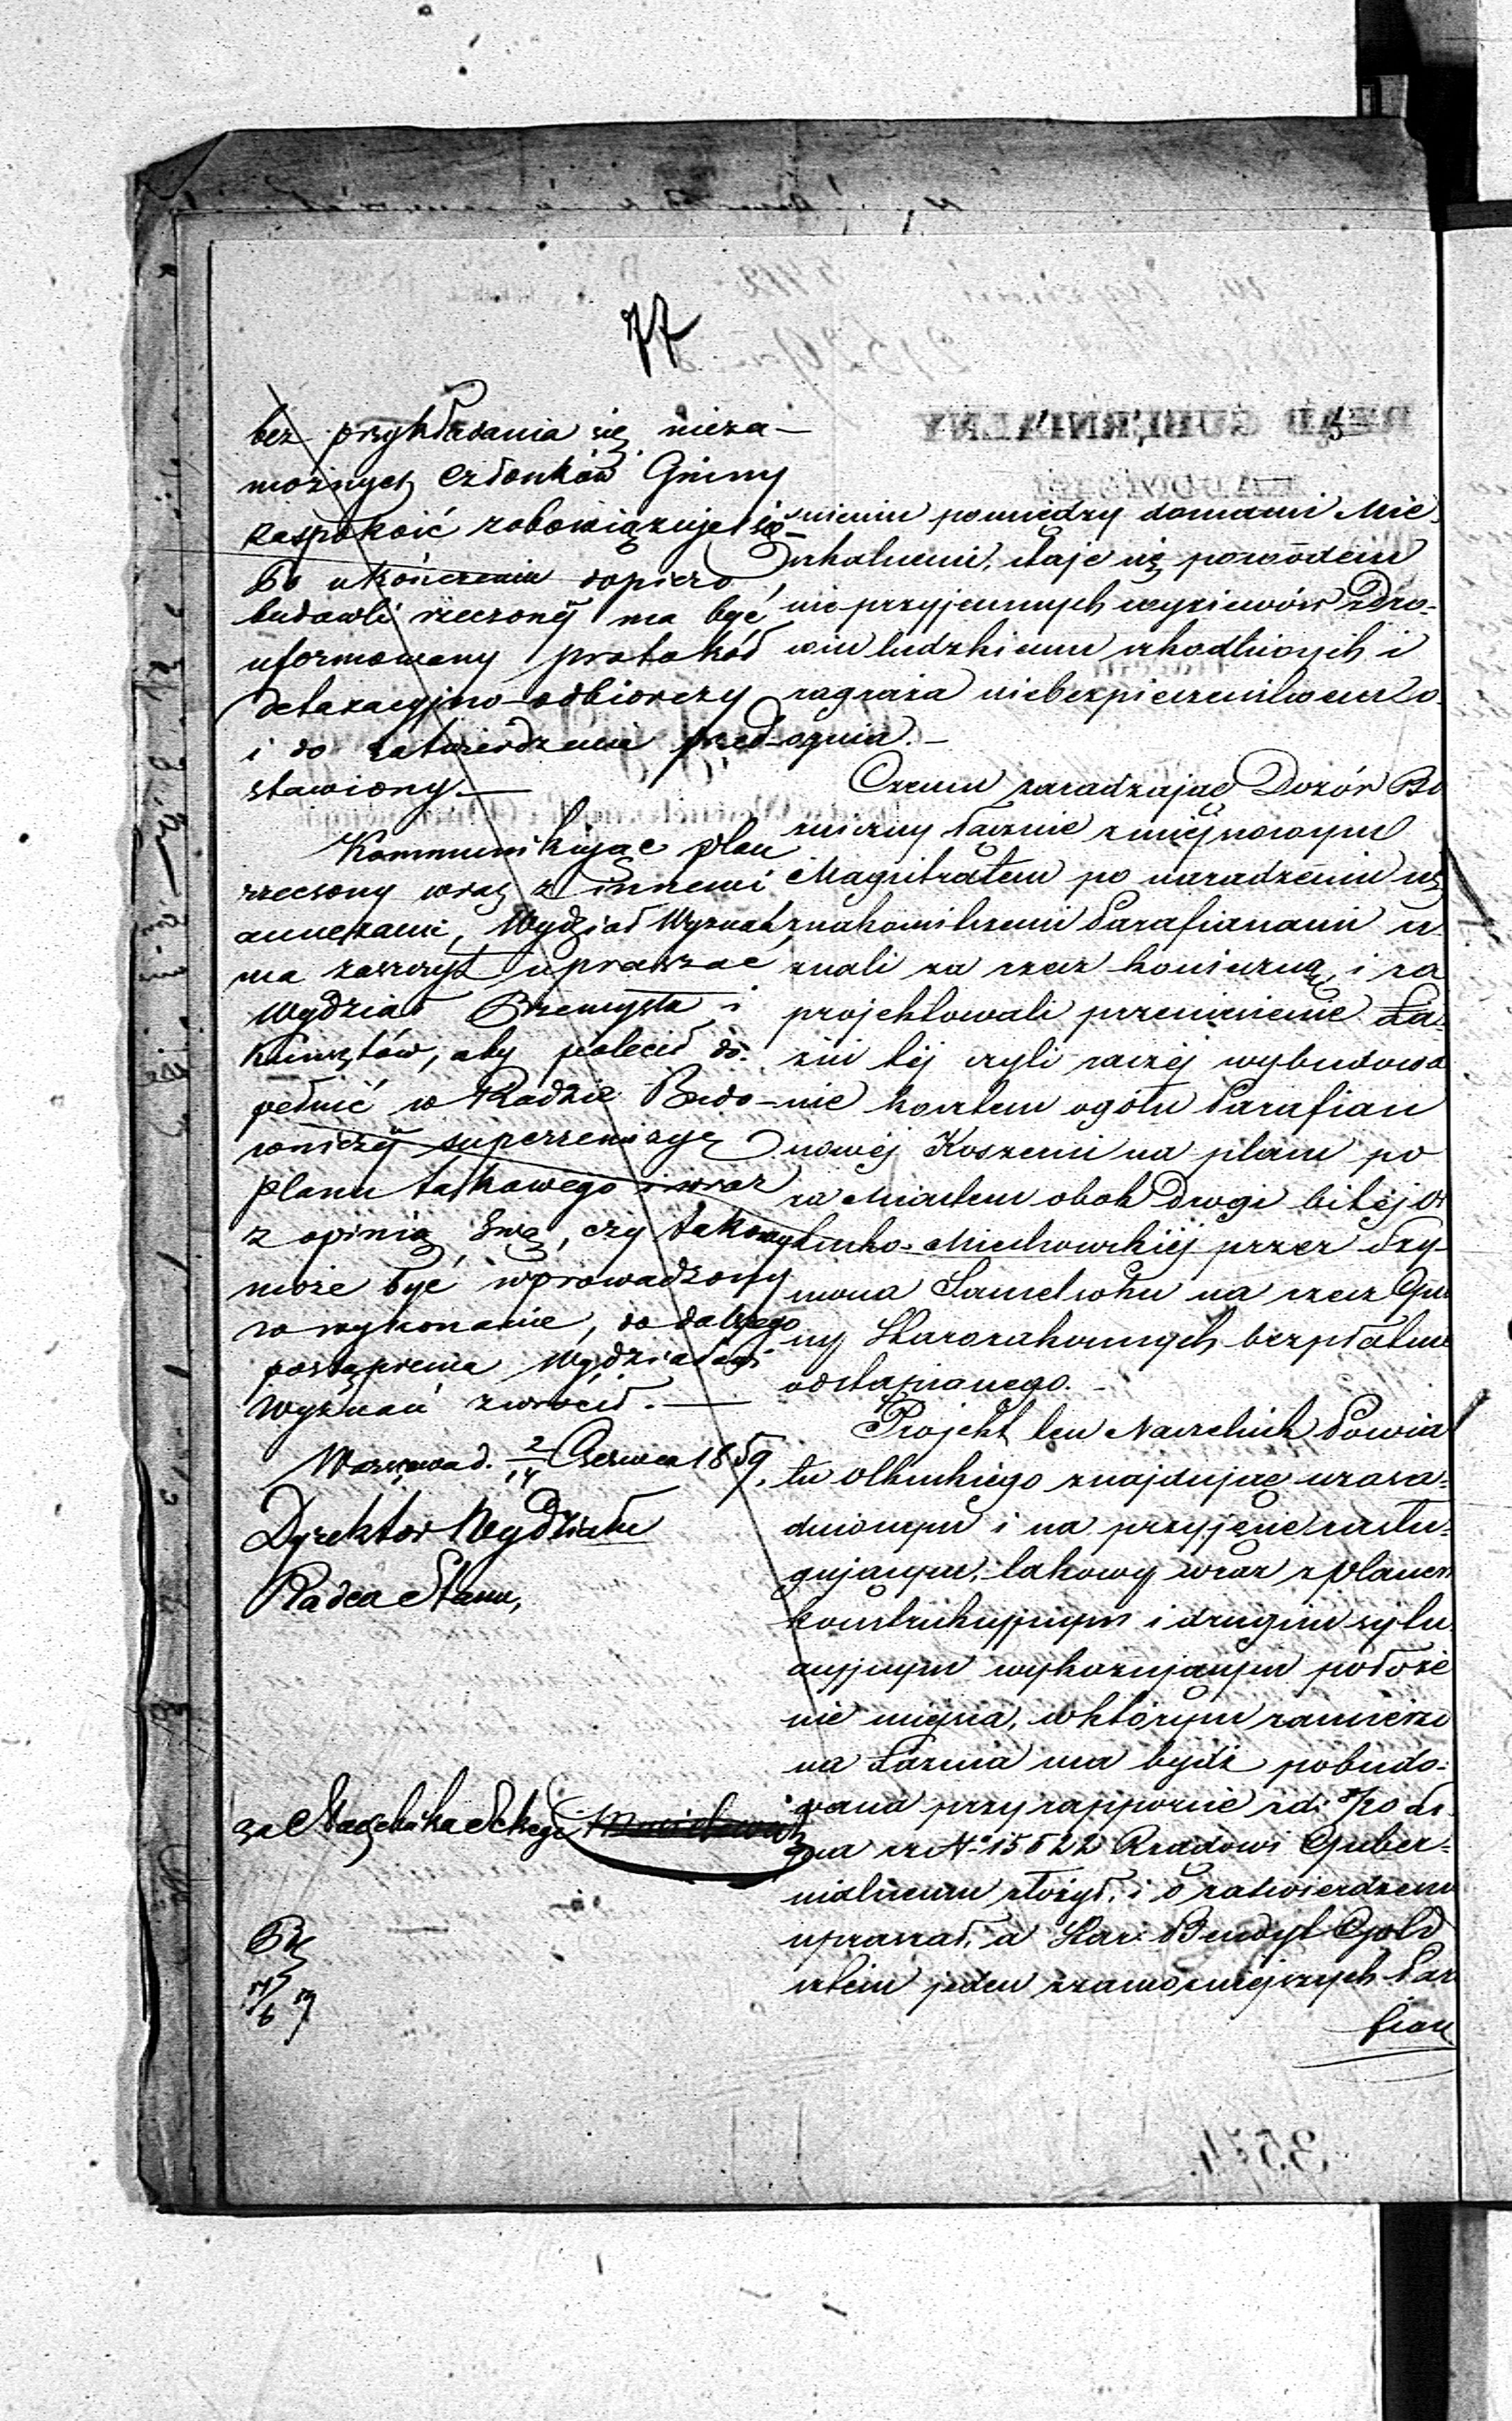 77
bez przykładania się nieza-
możnych Członków Gminy
zaspokoić zobowiązuje się
Po ukończeniu dopiero
budowli rzeczonéj ma być
uformowany protokół
detaxacyjno-odbiorczy
i do zatwierdzenia przed-
stawiony.—
Kommunikując plan
rzeczony wraz z innemi
annexami, Wydział Wyznań
ma zaszczyt upraszać
Wydział Przemysłu i
Kunsztów, aby polecił do-
pełnić w Radzie Budo-
wniczéj superrewizyę
planu takowego i wraz
z opinią swą, czy takowy
może być wprowadzony
w wykonanie, do dalszego
postąpienia Wydziałowi
Wyznań zwrócił.—
Warszawa d. 2/14 Czerwca 1859.
Dyrektor Wydziału
Radca Stanu,
za Naczelnika Sekcyi
nieniu pomiędzy domami Mie-
szkalnemi, staje się powodem
nieprzyjemnych wyziewów zdro-
wiu ludzkiemu szkodliwych i
zagraża niebezpieczeństwem o-
ognia.—
Czemu zaradzając Dozór Bó
źniczny łącznie z miejscowym
Magistratem po naradzeniu się
z znakomitszemi Parafianami u
znali za rzecz konieczną, i za
projektowali przeniesienie Ła-
źni téj czyli raczéj wybudowa
nie kosztem ogółu Parafian
nowéj Koszerni na placu po
za Miastem obok Drogi bitéj Ol
kusko-Miechowskiéj przez Szy-
mona na rzecz Gmi
ny Starozakonnych bezpłatnie
odstąpionego.—
Projekt ten Naczelnik Powia
tu Olkuskiego znajdując uzasa-
dnionym i na przyjęcie zasłu-
gującym, takowy wraz z planem
konstrukcyjnym i drugim sytu-
acyjnym wykazującym położe
nie miejsca, w którym zamierzo
na Łaźnia ma bydź pobudo-
wana przy rapporcie z d.
za N° 15522 Rządowi Guber-
nialnemu złożył, i o zatwierdzenie
upraszał, a Star: Bendyt Gold
sztein jeden z zamożniejszych Par
fian